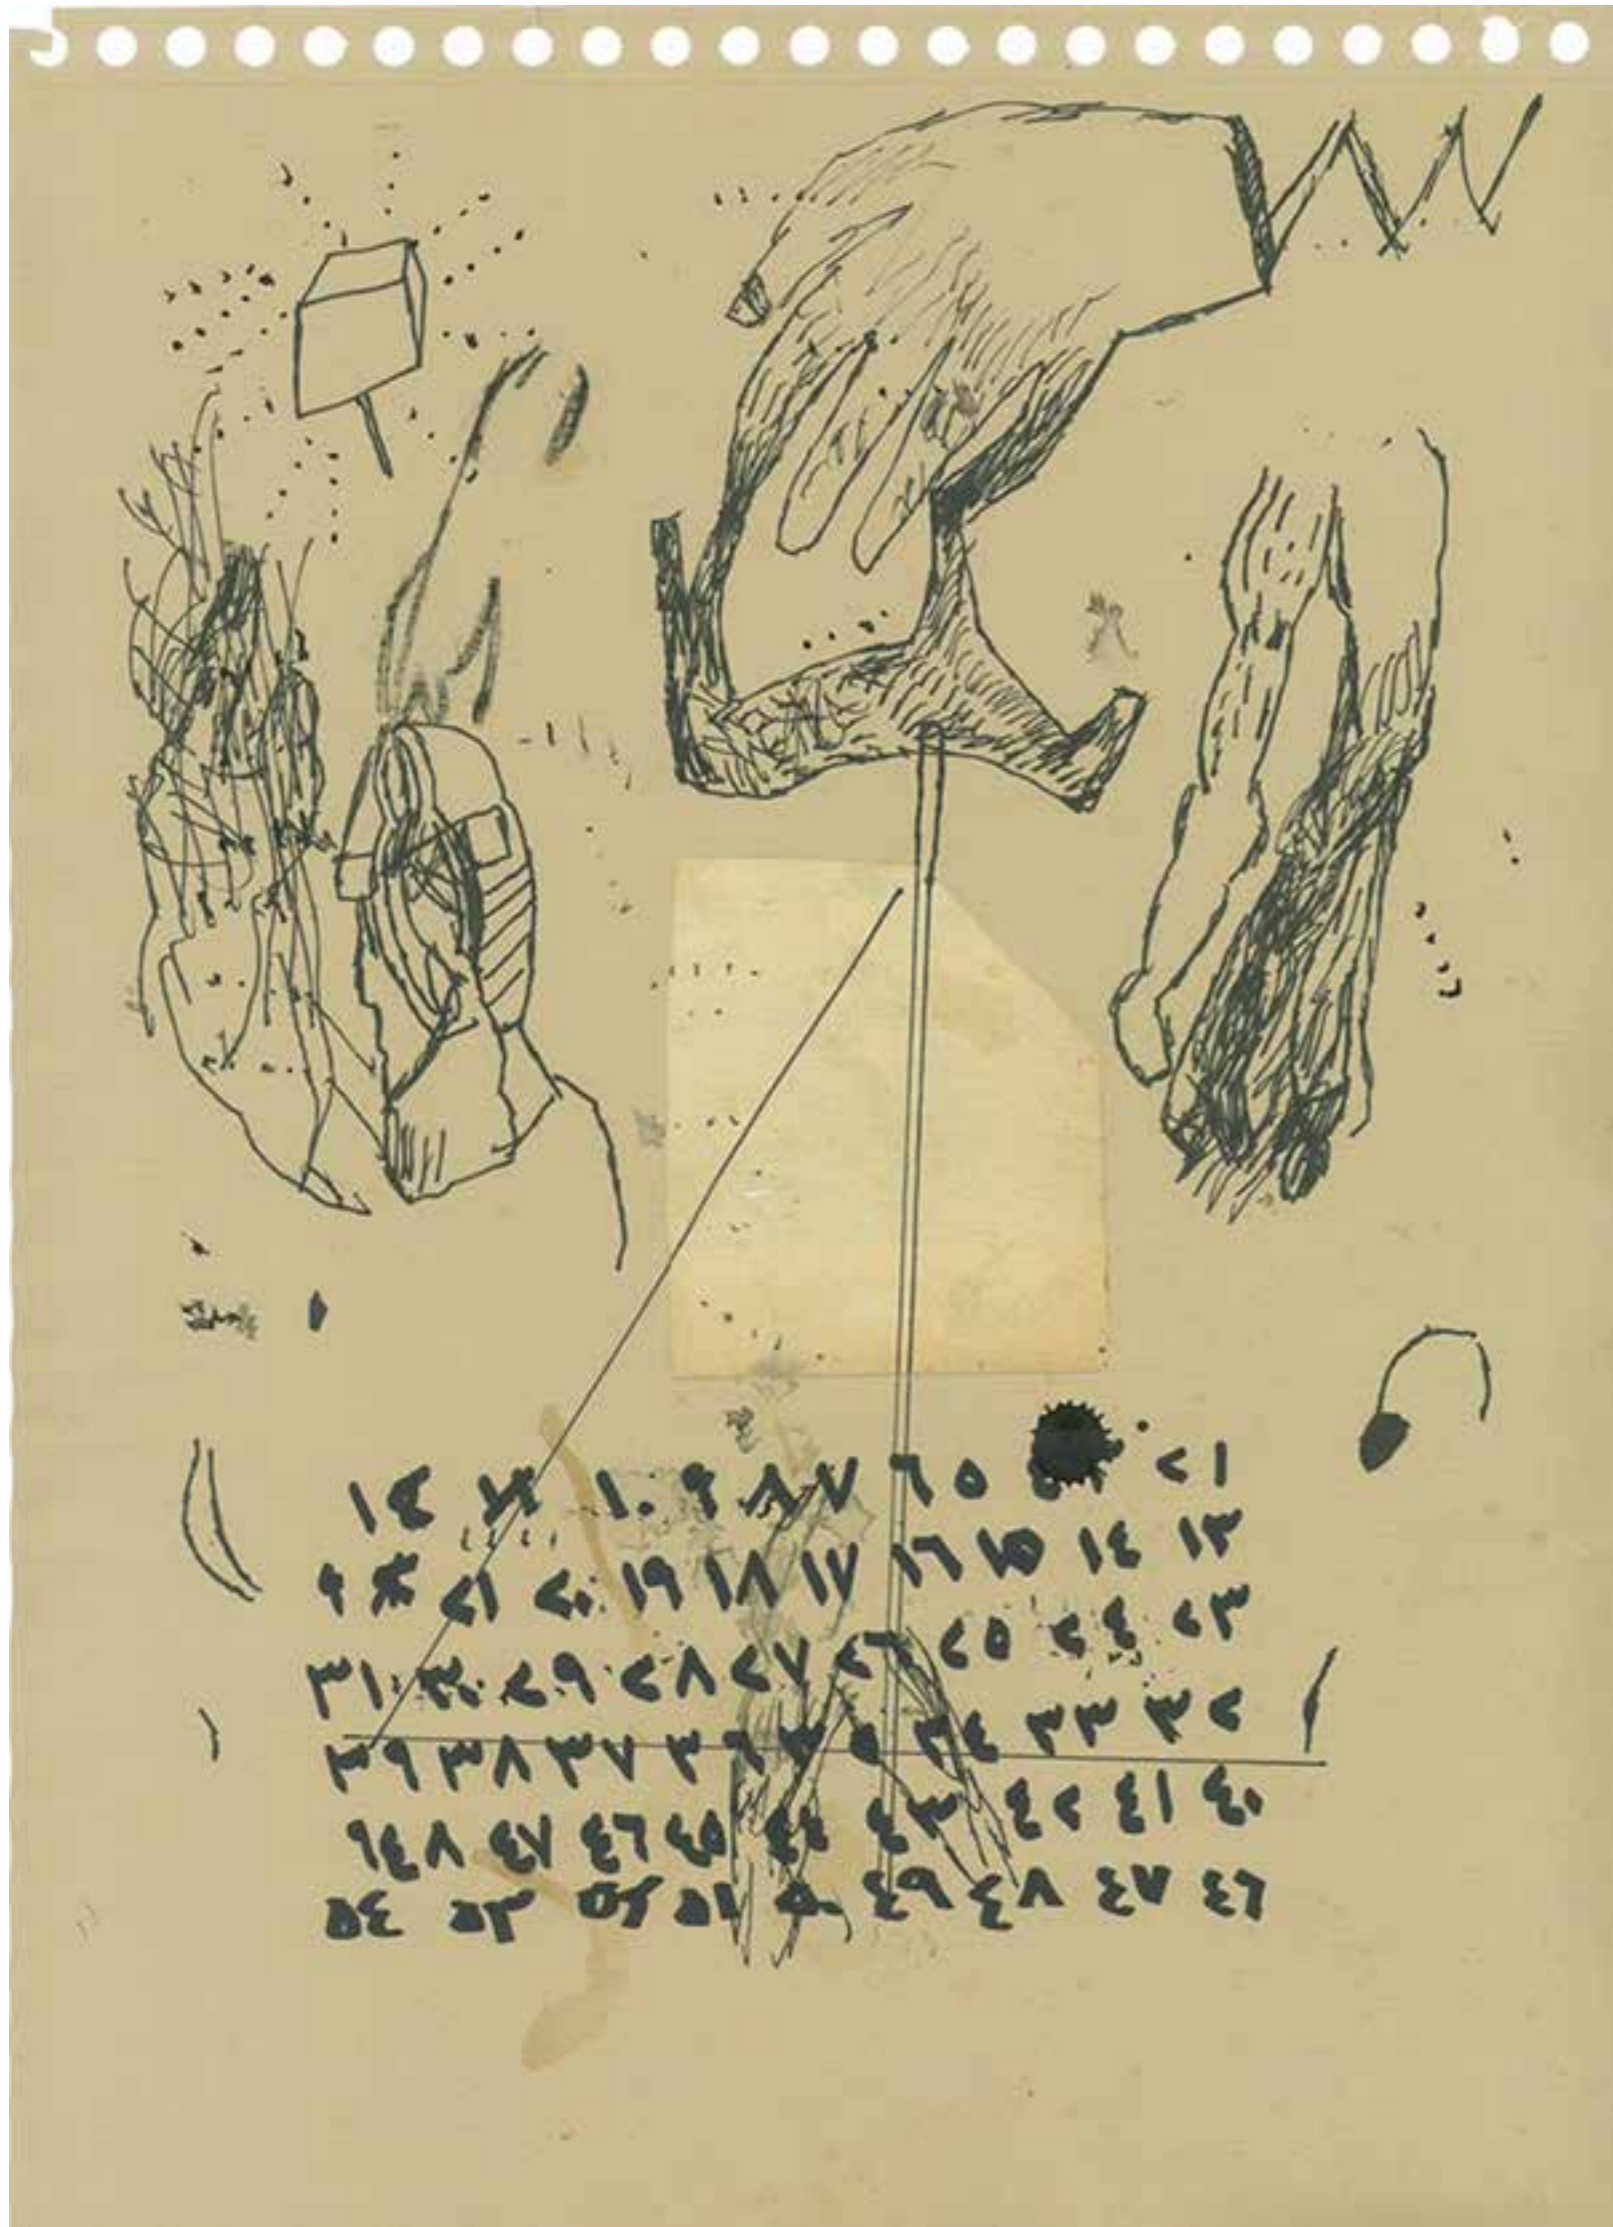 ١ ٢ ٥ ٦ ٧ ٨ ٩ ١٠
١٣ ١٤ ١٥ ١٦ ١٧ ١٨ ١٩ ٢٠ ٢١
٢٣ ٢٤ ٢٥ ٢٦ ٢٧ ٢٨ ٢٩ ٣٠ ٣١
٣٢ ٣٣ ٣٤ ٣٥ ٣٦ ٣٧ ٣٨ ٣٩
٤٠ ٤١ ٤٢ ٤٣ ٤٤ ٤٥ ٤٦ ٤٧ ٤٨
٤٦ ٤٧ ٤٨ ٤٩ ٥٠ ٥١ ٥٢ ٥٣ ٥٤